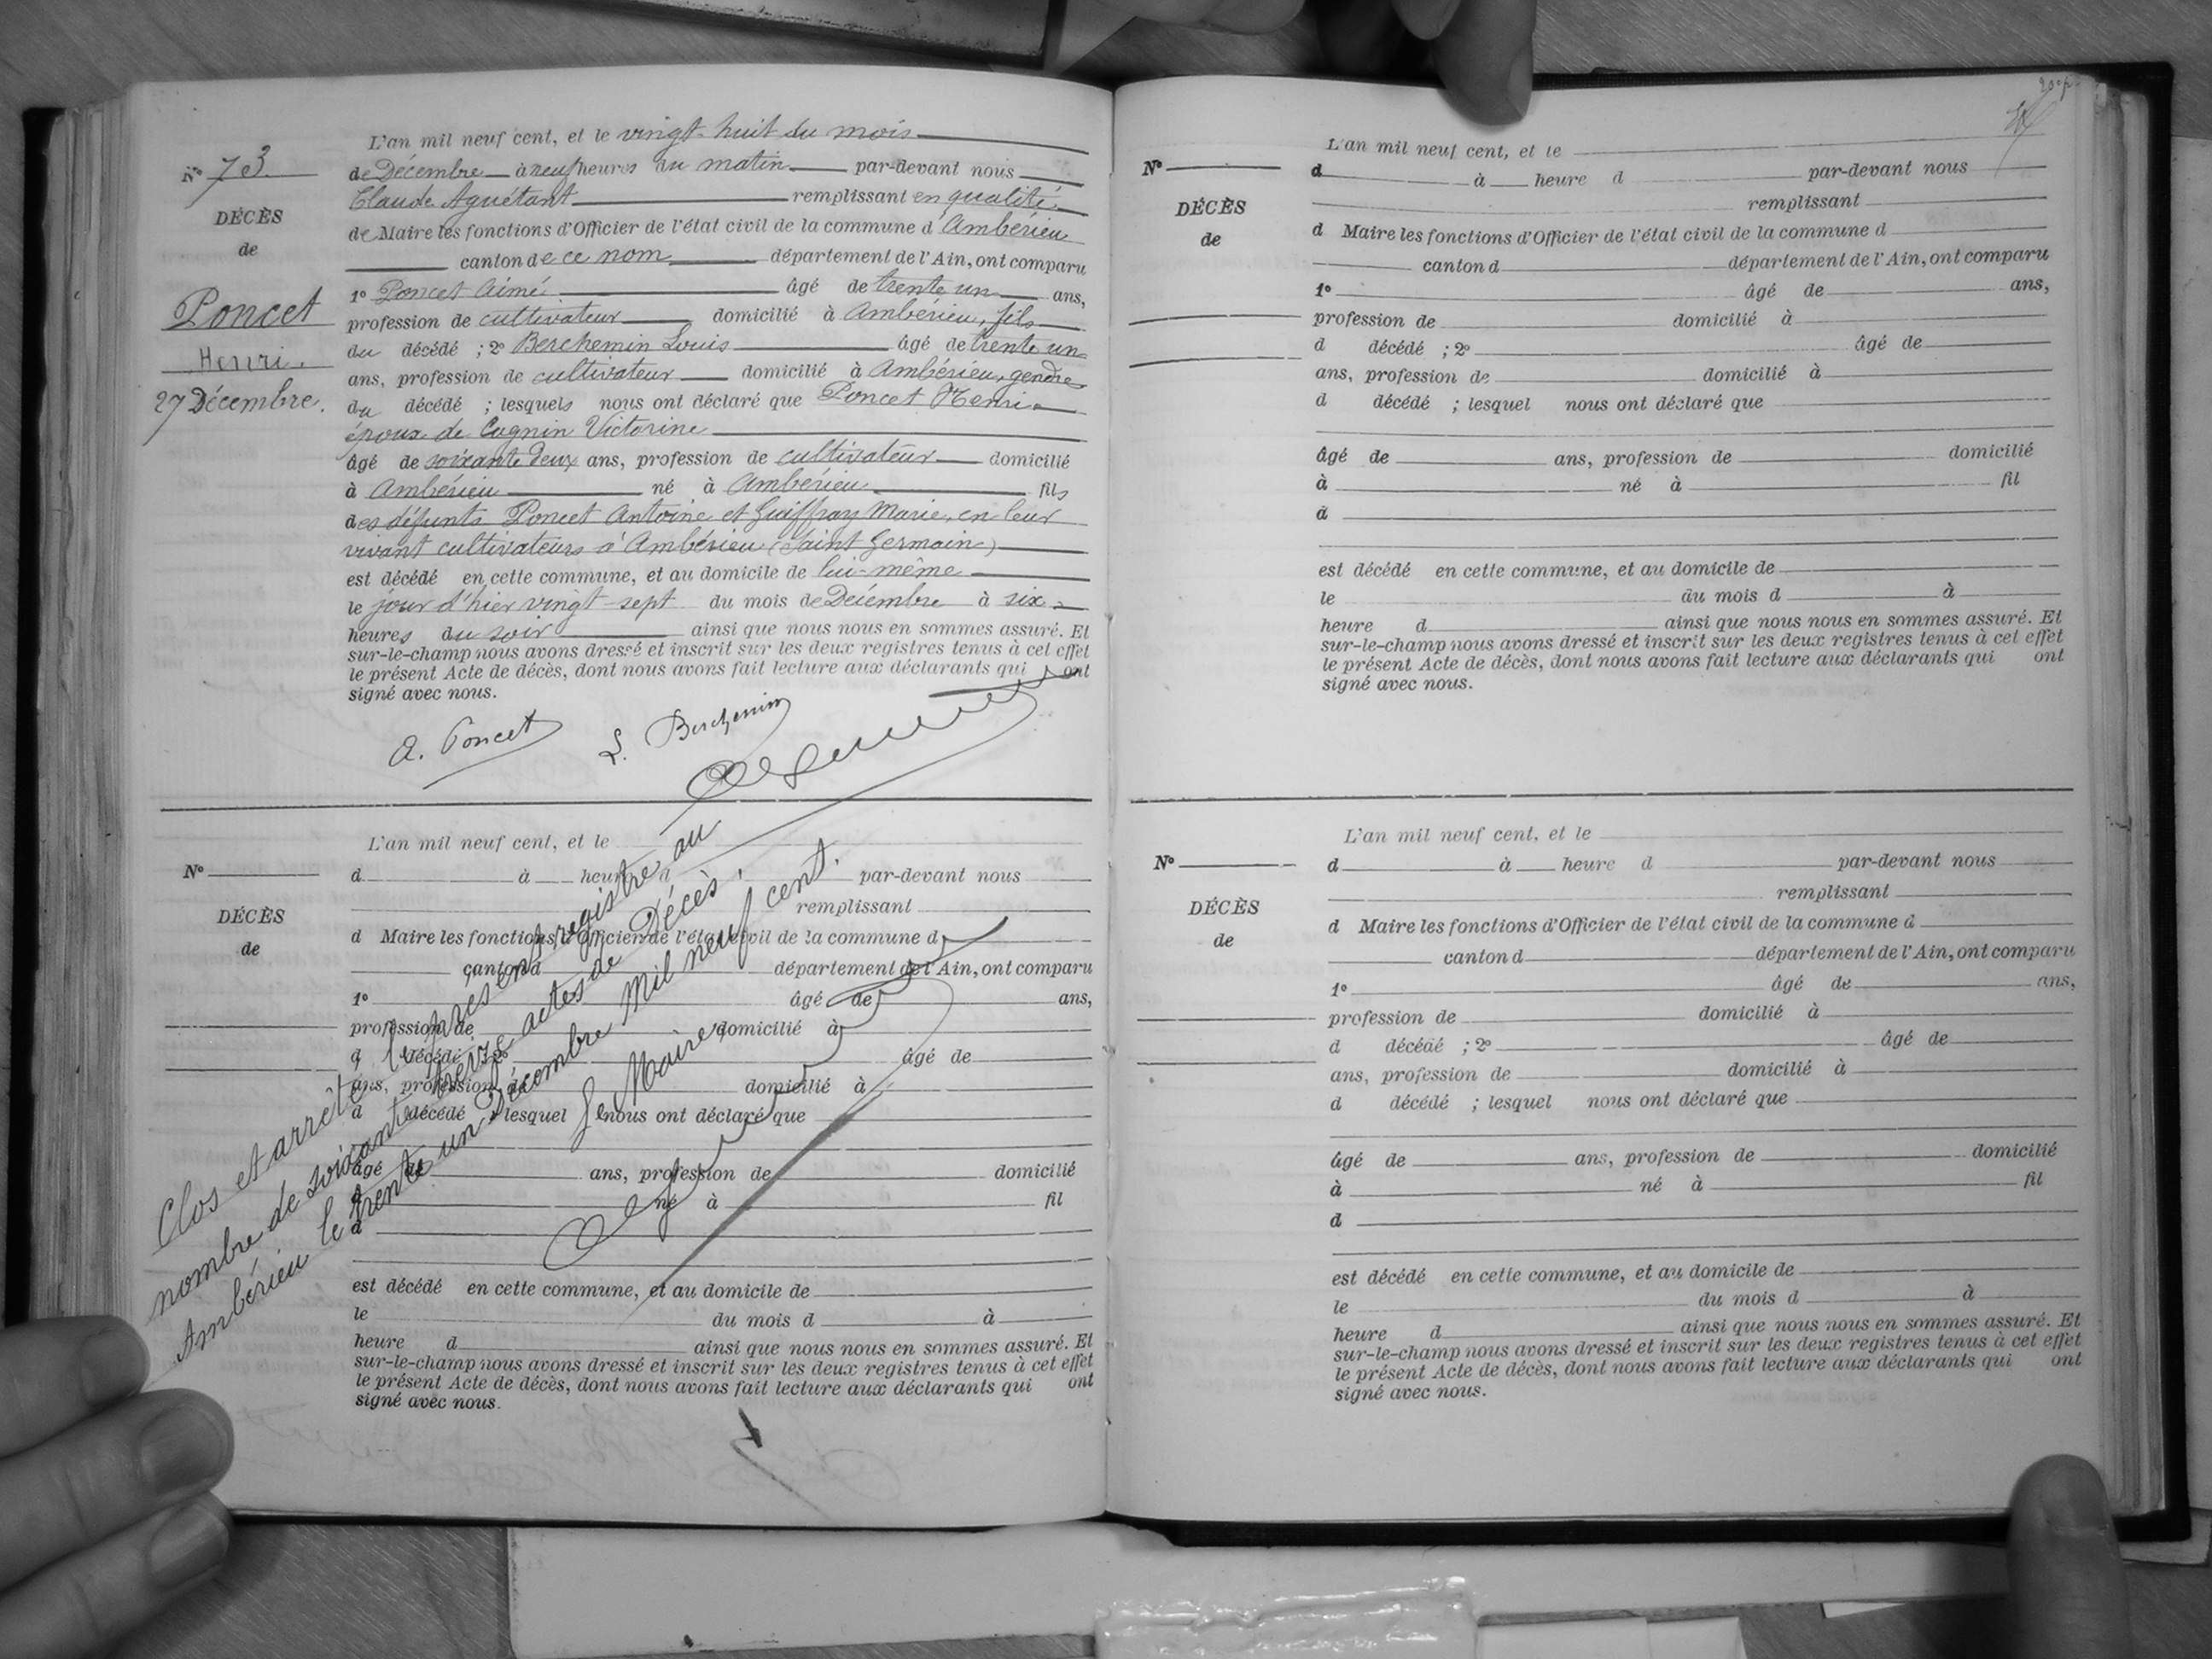 L'an mil neuf cent, et le vingt-huit du mois
N° 73.
de Décembre à neuf heures du matin par-devant nous
Claude Aguétant remplissant en qualité
DÉCÈS
de Maire les fonctions d'Officier de l'état civil de la commune d'Ambérieu
de
canton de ce nom département de l'Ain, ont comparu
1° Poncet Aimé âgé de trente un ans,
Poncet
profession de cultivateur domicilié à Ambérieu, fils
Henri.
du décédé ; 2° Berchemin Louis âgé de trente un
ans, profession de cultivateur domicilié à Ambérieu, gendre
27 Décembre.
du décédé ; lesquels nous ont déclaré que Poncet Henri
époux de Cagnin Victorine
âgé de soixante deux ans, profession de cultivateur domicilié
à Ambérieu né à Ambérieu fils
des défunts Poncet Antoine et Guiffray Marie, en leur
vivant cultivateurs à Ambérieu (Saint Germain)
est décédé en cette commune, et au domicile de lui-même
le jour d'hier vingt-sept du mois de Décembre à six
heures du soir ainsi que nous nous en sommes assuré. Et
sur-le-champ nous avons dressé et inscrit sur les deux registres tenus à cet effet
le présent Acte de décès, dont nous avons fait lecture aux déclarants qui ont
signé avec nous.
A. Poncet L. Berchemin
L'an mil neuf cent, et le
N°
d à heure d par-devant nous
remplissant
DÉCÈS
d Maire les fonctions d'Officier de l'état civil de la commune d
de
canton d département de l'Ain, ont comparu
1° âgé de ans,
profession de domicilié à
d décédé ; 2° âgé de
ans, profession de domicilié à
d décédé ; lesquel nous ont déclaré que
âgé de ans, profession de domicilié
à né à fil
d
est décédé en cette commune, et au domicile de
le du mois d à
heure d ainsi que nous nous en sommes assuré. Et
sur-le-champ nous avons dressé et inscrit sur les deux registres tenus à cet effet
le présent Acte de décès, dont nous avons fait lecture aux déclarants qui ont
signé avec nous.
Clos et arrêté le présent registre au
nombre de soixante treize actes de Décès.
Ambérieu le trente un Décembre mil neuf cent.
Le Maire
L'an mil neuf cent, et le
N°
d à heure d par-devant nous
remplissant
DÉCÈS
d Maire les fonctions d'Officier de l'état civil de la commune d
de
canton d département de l'Ain, ont comparu
1° âgé de ans,
profession de domicilié à
d décédé ; 2° âgé de
ans, profession de domicilié à
d décédé ; lesquel nous ont déclaré que
âgé de ans, profession de domicilié
à né à fil
d
est décédé en cette commune, et au domicile de
le du mois d à
heure d ainsi que nous nous en sommes assuré. Et
sur-le-champ nous avons dressé et inscrit sur les deux registres tenus à cet effet
le présent Acte de décès, dont nous avons fait lecture aux déclarants qui ont
signé avec nous.
L'an mil neuf cent, et le
N°
d à heure d par-devant nous
remplissant
DÉCÈS
d Maire les fonctions d'Officier de l'état civil de la commune d
de
canton d département de l'Ain, ont comparu
1° âgé de ans,
profession de domicilié à
d décédé ; 2° âgé de
ans, profession de domicilié à
d décédé ; lesquel nous ont déclaré que
âgé de ans, profession de domicilié
à né à fil
d
est décédé en cette commune, et au domicile de
le du mois d à
heure d ainsi que nous nous en sommes assuré. Et
sur-le-champ nous avons dressé et inscrit sur les deux registres tenus à cet effet
le présent Acte de décès, dont nous avons fait lecture aux déclarants qui ont
signé avec nous.